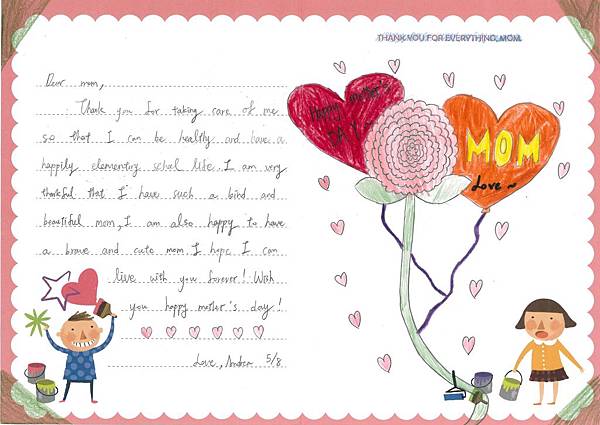 Dear mom,
Thank you for taking care of me
so that I can be healthy and have a
happily elementry schal life. I am very
thankful that I have such a bind and
beautiful mom, I am also happy to have
a brave and cute mom, I hope I can
live with you forever! Wish
you happy mother's day!
Love, Andrea 5/8
THANK YOU FOR EVERYTHING, MOM.
Happy mother's
DAY
MOM
Love~